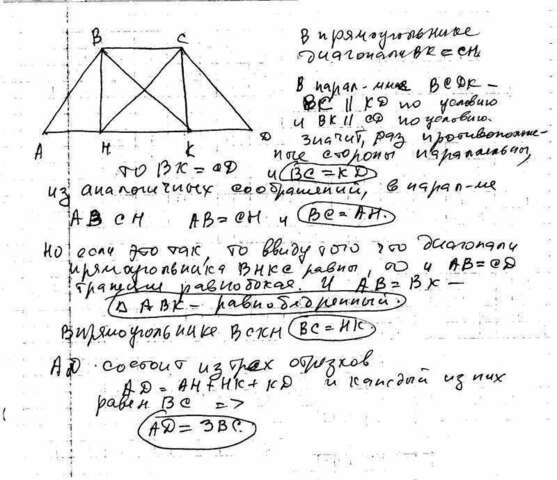 B C
A H K D
В прямоугольнике
диагонали BK = CH.
В парал-мме BCDK –
BC || KD по условию
и BK || CD по условию.
Значит, раз противополож-
ные стороны параллельны,
то BK = CD и BC = KD
из аналогичных соображений, в парал-ме
ABCH AB = CH и BC = AH.
Но если это так, то ввиду того что диагонали
прямоугольника BHKC равны, то и AB = CD
трапеция равнобокая. И AB = BK –
Δ ABK – равнобедренный.
В прямоугольнике BCKH BC = HK.
AD состоит из трех отрезков
AD = AH + HK + KD и каждый из них
равен BC =>
AD = 3BC.